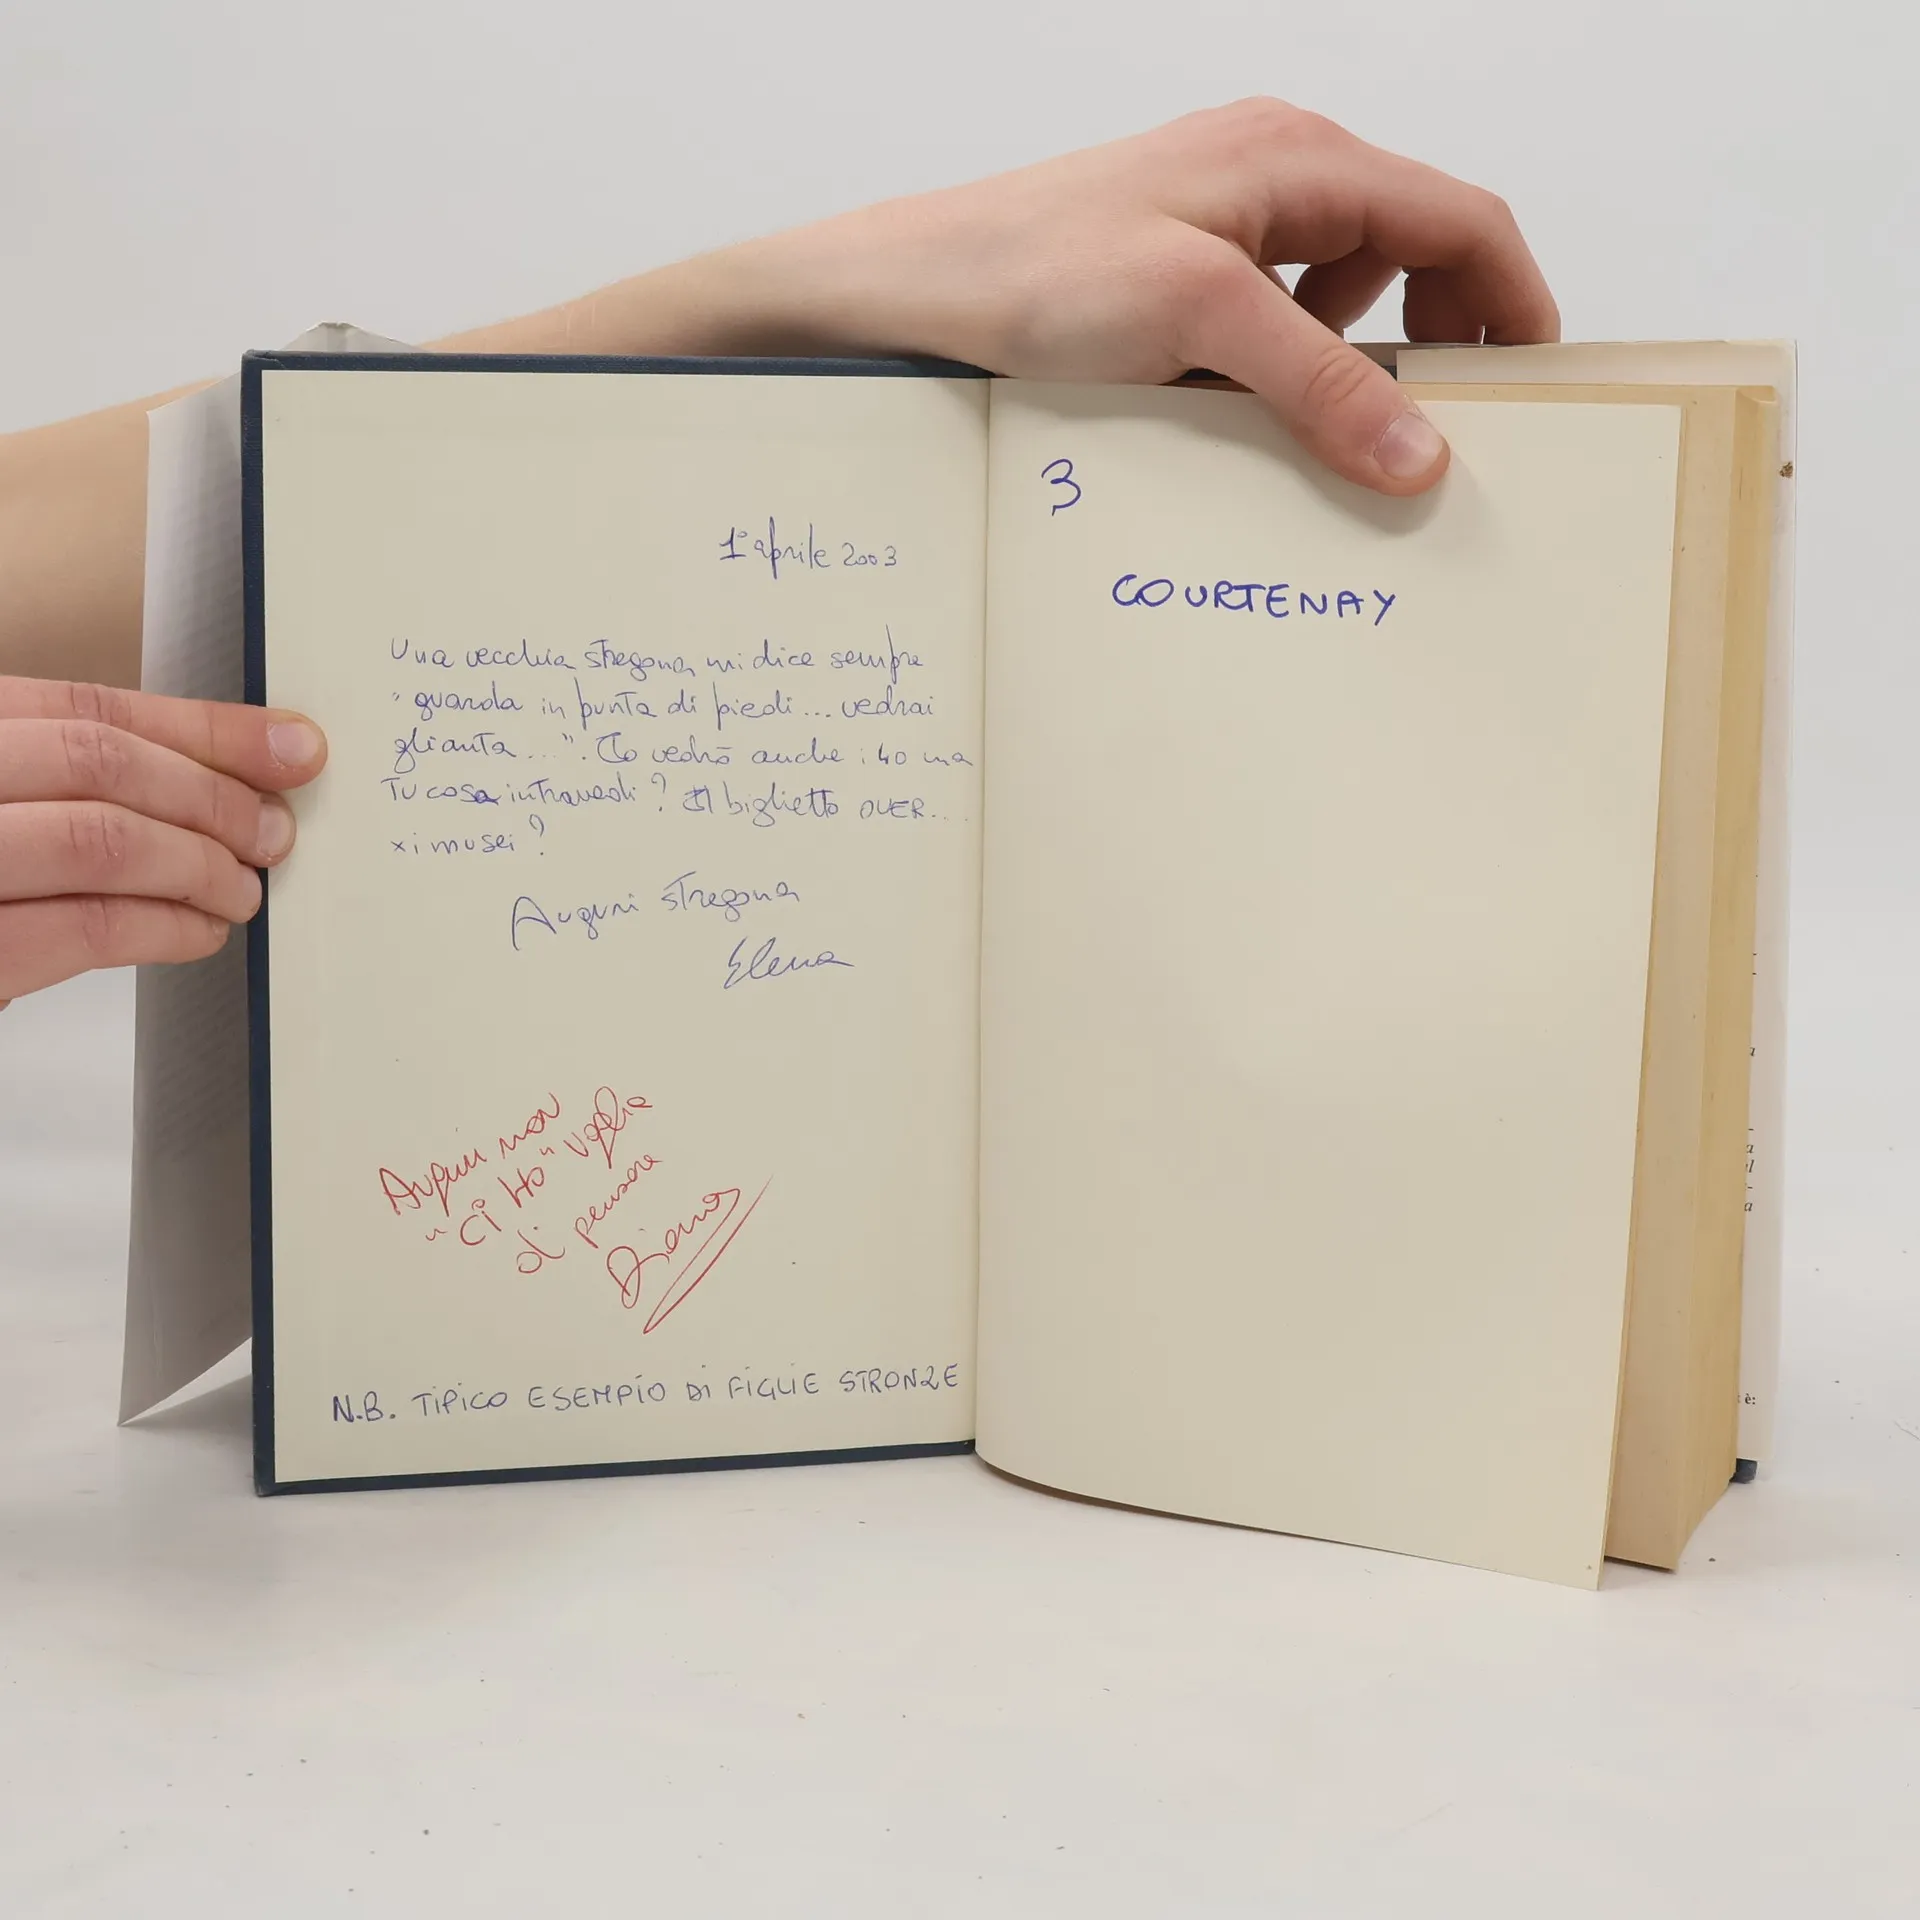 1° aprile 2003
Una vecchia stregona mi dice sempre
"guarda in punta di piedi... vedrai
gli anta...". Io vedrò anche i 40 ma
Tu cosa intravedi? Il biglietto OVER...
x i musei?
Auguri stregona
Elena
Auguri non
"Ci Ho" voglia
di pensare
Diana
N.B. TIPICO ESEMPIO DI FIGLIE STRONZE
3
COURTENAY
è: